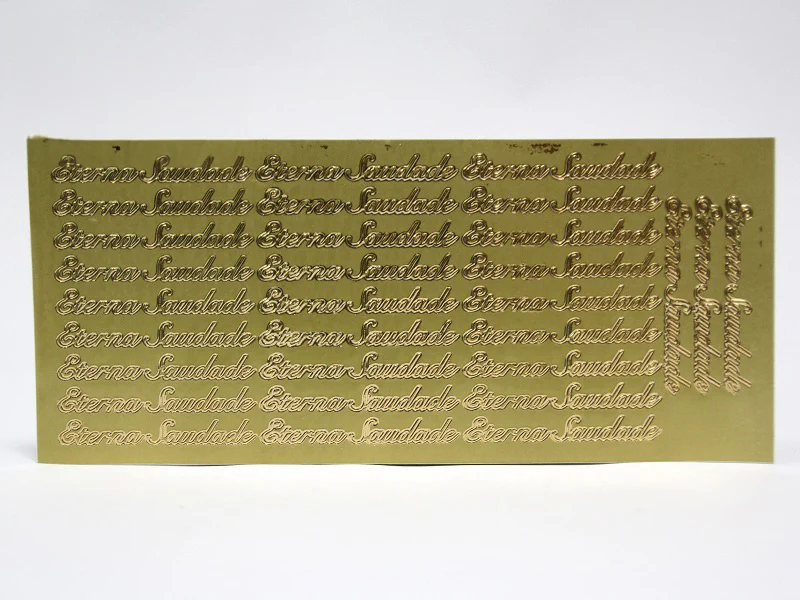 Eterna Saudade Eterna Saudade Eterna Saudade
Eterna Saudade Eterna Saudade Eterna Saudade
Eterna Saudade Eterna Saudade Eterna Saudade
Eterna Saudade Eterna Saudade Eterna Saudade
Eterna Saudade Eterna Saudade Eterna Saudade
Eterna Saudade Eterna Saudade Eterna Saudade
Eterna Saudade Eterna Saudade Eterna Saudade
Eterna Saudade Eterna Saudade Eterna Saudade
Eterna Saudade Eterna Saudade Eterna Saudade
Eterna Saudade
Eterna Saudade
Eterna Saudade